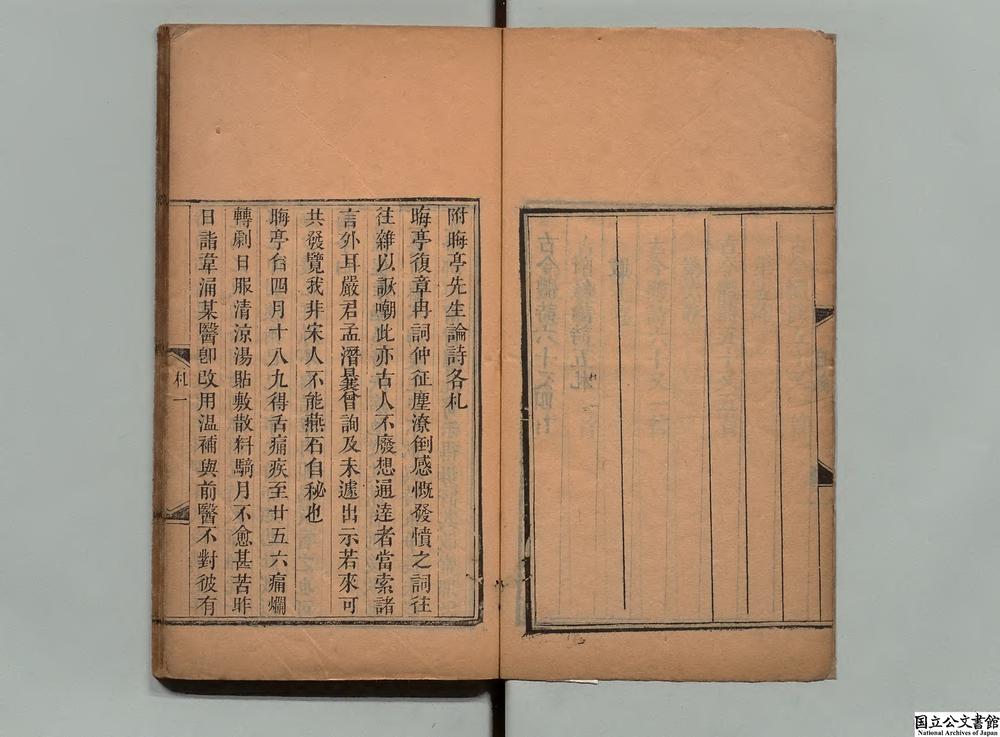 附晦亭先生論詩各札
晦亭復章冉詞仲征塵潦倒感慨發憤之詞往
往雜以詼嘲此亦古人不廢想通達者當索諸
言外耳嚴君孟潛曩曾詢及未遽出示若來可
共發覽我非宋人不能燕石自秘也
晦亭台四月十八九得舌痛疾至廿五六痛爛
轉劇日服清涼湯貼敷散料騎月不愈甚苦昨
日詣韋涌某醫卽改用温補與前醫不對彼有
札 一
国立公文書館
National Archives of Japan